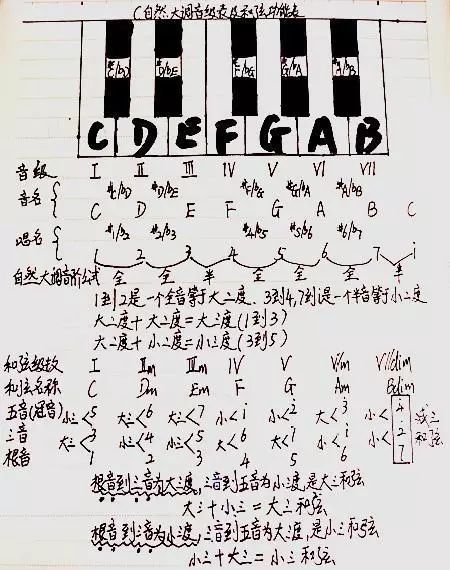 C自然大调音级表及和弦功能表
#C/bD #D/bE #F/bG #G/bA #A/bB
C D E F G A B
音级 I II III IV V VI VII
音名 { #C/bD #D/bE #F/bG #G/bA #A/bB
C D E F G A B C
唱名 { #1/b2 #2/b3 #4/b5 #5/b6 #6/b7
1 2 3 4 5 6 7 i
自然大调音阶公式 全 全 半 全 全 全 半
1到2是一个全音等于大二度、3到4,7到i是一个半音等于小二度
大二度+大二度=大三度(1到3)
大二度+小二度=小三度(3到5)
和弦级数 I IIm IIIm IV V VIm VIIdim
和弦名称 C Dm Em F G Am Bdim
五音(冠音) 小三<5 大三<6 大三<7 小<i 小<2 大<3 小<4 减三
三音 大三<3 小三<4 小三<5 大<6 大<7 小<i 小<2 和弦
根音 1 2 3 4 5 6 7
根音到三音为大三度,三音到五音为小三度,是大三和弦
大三+小三=大三和弦
根音到三音为小三度,三音到五音为大三度,是小三和弦
小三+大三=小三和弦